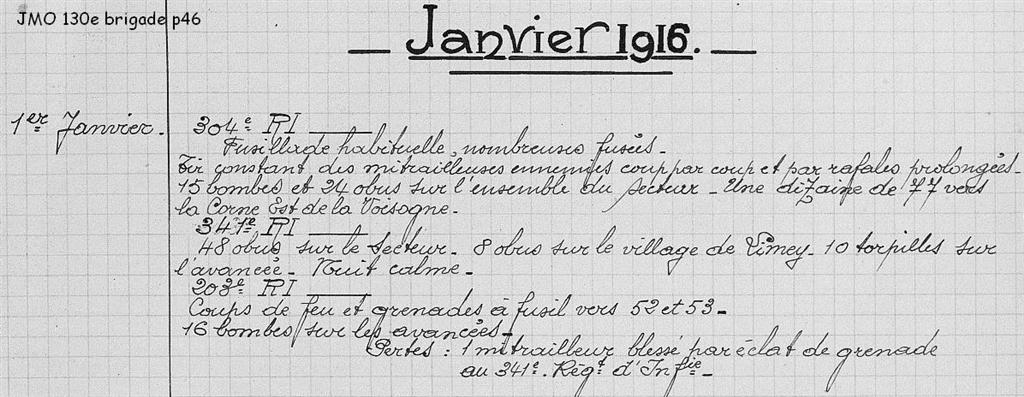 JMO 130e brigade p46
Janvier 1916.
1er Janvier.
304e RI
Fusillade habituelle, nombreuses fusées.
Tir constant des mitrailleuses ennemies coup par coup et par rafales prolongées.
15 bombes et 24 obus sur l'ensemble du secteur - Une dizaine de 77 vers
la Corne Est de la Voisogne.
341e RI
48 obus sur le secteur - 8 obus sur le village de Limey - 10 torpilles sur
l'avancée - Nuit calme -
203e RI
Coups de feu et grenades à fusil vers 52 et 53 -
16 bombes sur les avancées -
Pertes : 1 mitrailleur blessé par éclat de grenade
au 341e. Régt d'Infie -